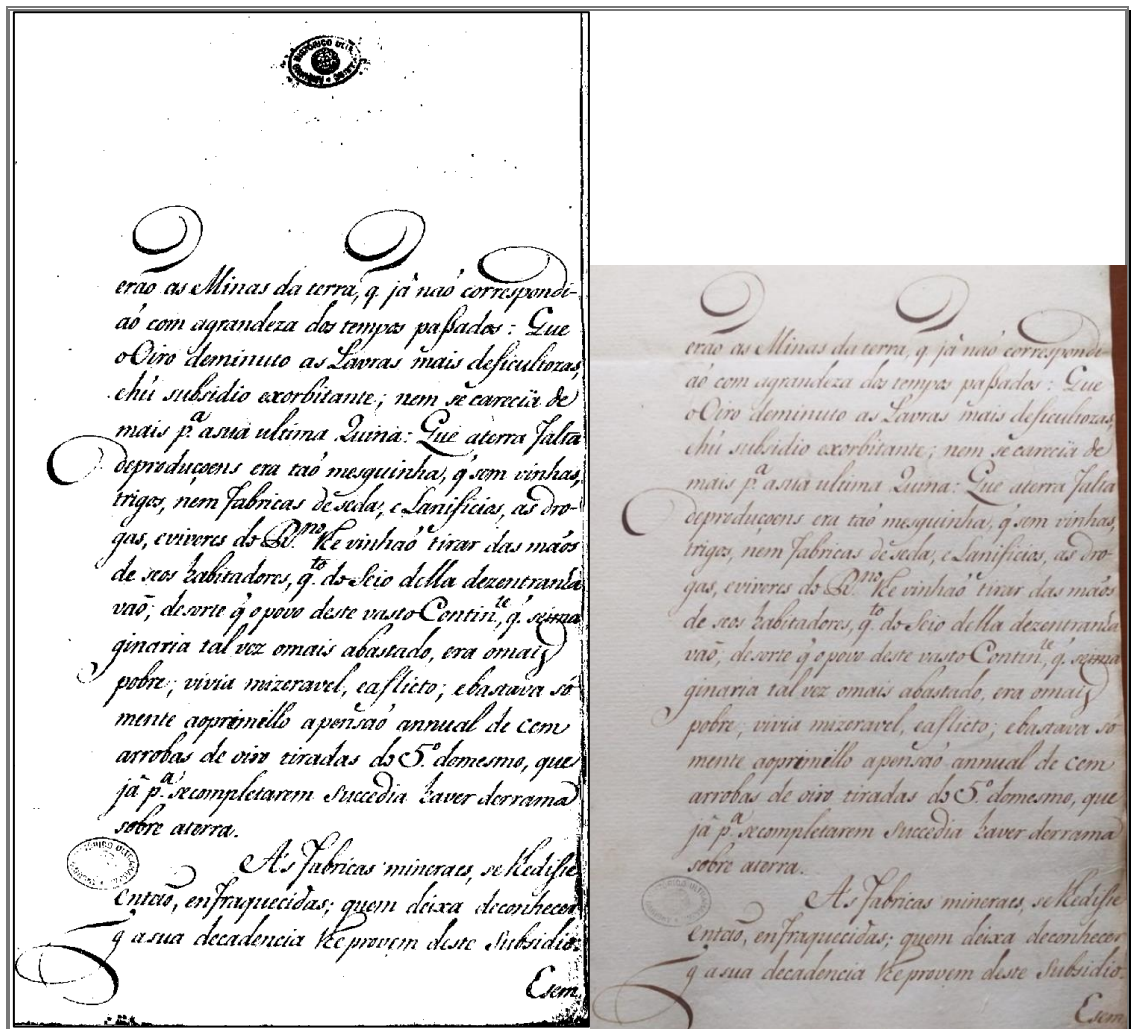 erão as Minas da terra, q̃ já naõ correspondi-
aõ com agrandeza dos tempos paſsados: Que
o Oiro deminuto as Lavras mais deficultozas,
ehũ subsidio exorbitante; nem se carecia de
mais p.ª asua ultima Ruina: Que aterra falta
deproduçoens era taõ mesquinha, q̃ sem vinhas,
trigos, nem fabricas de seda, e Lanificios, as dro-
gas, eviveres do R.no lhe vinhaõ tirar das maõs
de seos habitadores, q.to do Seio della dezentranha
vaõ; desorte q̃ o povo deste vasto Contin.te, q̃ seima
ginaria tal vez omais abastado, era omais
pobre; vivia mizeravel, eaflicto; ebastava só
mente aoprimillo apensaõ annual de cem
arrobas de oiro tiradas do 5.º domesmo, que
já p.ª secompletarem succedia haver derrama
sobre aterra.
As Fabricas mineraes, se lhedisse
entaõ, enfraquecidas; quem deixa deconhecer
q̃ asua decadencia lhe provem deste Subsidio.
Esem
erão as Minas da terra, q̃ já naõ correspondi-
aõ com agrandeza dos tempos paſsados: Que
o Oiro deminuto as Lavras mais deficultozas,
ehũ subsidio exorbitante; nem se carecia de
mais p.ª asua ultima Ruina: Que aterra falta
deproduçoens era taõ mesquinha, q̃ sem vinhas,
trigos, nem fabricas de seda, e Lanificios, as dro-
gas, eviveres do R.no lhe vinhaõ tirar das maõs
de seos habitadores, q.to do Seio della dezentranha
vaõ; desorte q̃ o povo deste vasto Contin.te, q̃ seima
ginaria tal vez omais abastado, era omais
pobre; vivia mizeravel, eaflicto; ebastava só
mente aoprimillo apensaõ annual de cem
arrobas de oiro tiradas do 5.º domesmo, que
já p.ª secompletarem succedia haver derrama
sobre aterra.
As Fabricas mineraes, se lhedisse
entaõ, enfraquecidas; quem deixa deconhecer
q̃ asua decadencia lhe provem deste Subsidio.
Esem